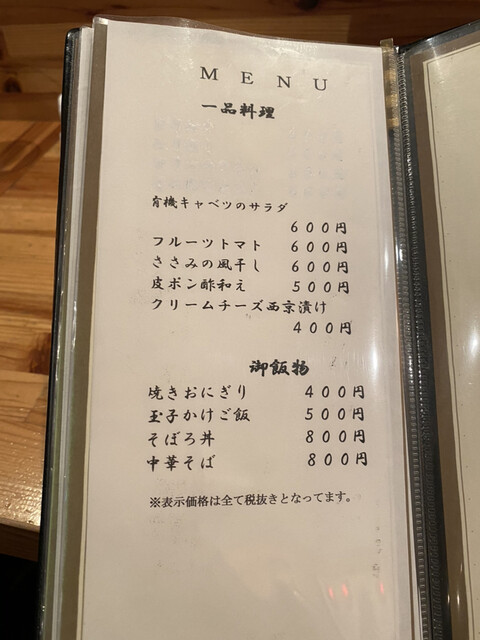 MENU
一品料理
有機キャベツのサラダ
６００円
フルーツトマト ６００円
ささみの風干し ６００円
皮ポン酢和え ５００円
クリームチーズ西京漬け
４００円
御飯物
焼きおにぎり ４００円
玉子かけご飯 ５００円
そぼろ丼 ８００円
中華そば ８００円
※表示価格は全て税抜きとなってます。